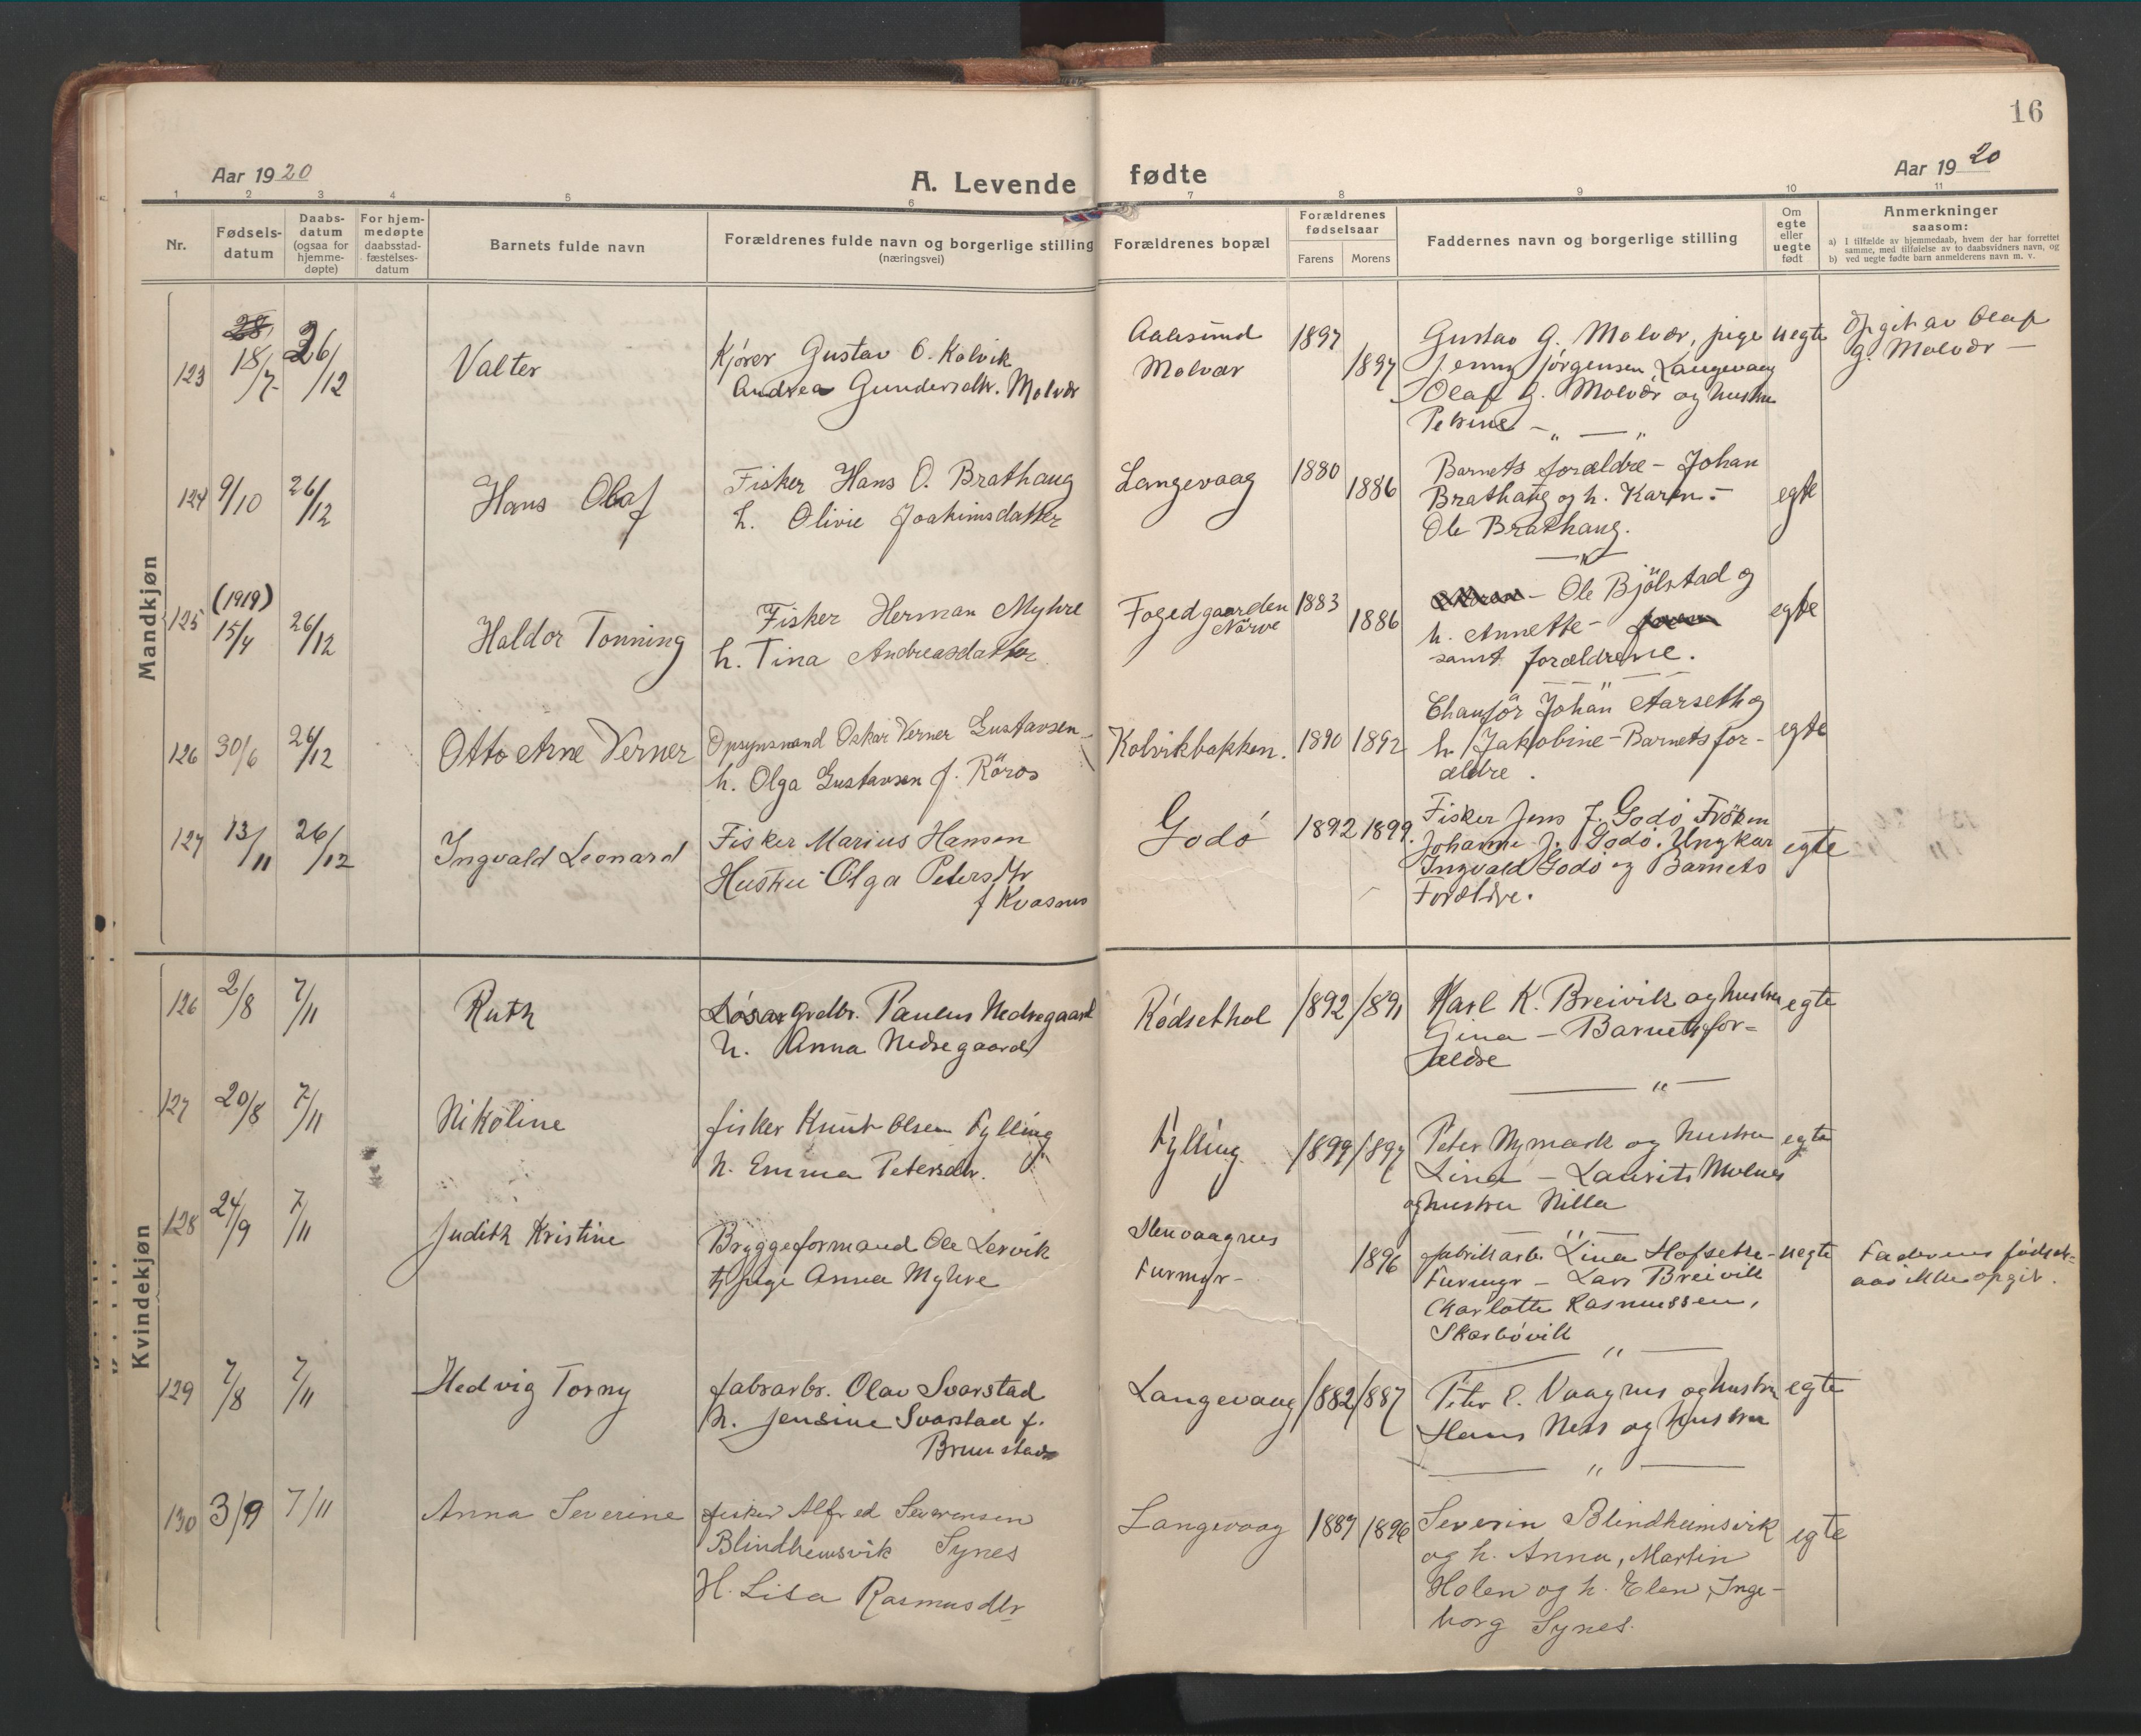 16
Aar 1920
A. Levende fødte
Aar 1920
1 2 3 4 5 6 7 8 9 10 11
Nr.
Fødsels-
datum
Daabs-
datum
(ogsaa for
hjemme-
døpte)
For hjem-
medøpte
daabsstad-
fæstelses-
datum
Barnets fulde navn
Forældrenes fulde navn og borgerlige stilling
(næringsvei)
Forældrenes bopæl
Forældrenes
fødselsaar
Farens Morens
Faddernes navn og borgerlige stilling
Om
egte
eller
uegte
født
Anmerkninger
saasom:
a) I tilfælde av hjemmedaab, hvem der har forrettet
samme, med tilføielse av to daabsvidners navn, og
b) ved uegte fødte barn anmelderens navn m. v.
Mandkjøn
123 18/7 26/12
Valter
Kjører Gustav O. Kolvik
Andrea Gundersdtr. Molvær
Aalesund
Molvær
1897
1897
Gustav G. Molvær, pige
Jenny Jørgensen, Langevaag
Olaf G. Molvær og hustru
Petrine — „ — „
uegte
Opgit av Olaf
G. Molvær —
124 9/10 26/12
Hans Olaf
Fisker Hans O. Brathaug
h. Olivie Joakimsdatter
Langevaag
1880
1886
Barnets forældre – Johan
Brathaug og h. Karen. –
Ole Brathaug.
egte
125 (1919) 15/4 26/12
Haldor Tonning
Fisker Herman Myhre
h. Tina Andreasdatter
Fogedgaarden
Nörve
1883
1886
– Ole Bjölstad og
h. Annette –
samt forældrene.
egte
126 30/6 26/12
Otto Arne Verner
Opsynsmand Oskar Verner Gustavsen –
h. Olga Gustavsen f. Röros
Kolvikbakken.
1890 1892
Chauför Johan Aarseth og
h. Jakobine – Barnets for-
ældre.
egte
127 13/11 26/12
Ingvald Leonard
Fisker Marius Hansen
Hustru Olga Petersdtr
f Kvasnes
Godö
1892 1899.
Fisker Jens J. Godö, Fröken
Johanne J. Godö. Ungkar
Ingvald Godö og Barnets
Forældre.
egte
Kvindekjøn
126 2/8 7/11
Ruth
grdbr. Paulus Nedregaard
h. Anna Nedregaard
Rødsethol
1892 1891
Karl K. Breivik og hustru
Gina – Barnets for=
ældre
egte
127 20/8 7/11
Nikoline
fisker Knut Olsen Fylling
h. Emma Petersdtr.
Fylling
1899 1897
Peter Nymark og hustru
Lina – Laurits Molnes
og hustru Nilla
egte
128 24/9 7/11
Judith Kristine
Bryggeformand Ole Lervik
pige Anna Myhre
Stenvaagnes
Furmyr –
1896
fabrikarb. Lina Hofsethe –
Furmyr – Lars Breivik
Charlotte Rasmussen,
Skarbövik
uegte
Faderens fødsels=
aar ikke opgit.
129 7/8 7/11
Hedvig Torny
fabrarbr. Olav Svarstad
h. Jensine Svarstad f.
Brunstad
Langevaag
1882 1887
Peter E. Vaagnes og hustru
Hans Ness og hustru
egte
130 3/9 7/11
Anna Severine
fisker Alfred Severinsen
Blindheimsvik Synes
H. Lisa Rasmusdtr
Langevaag
1887 1896
Severin Blindheimsvik
og h. Anna, Martin
Holen og h. Elen, Inge-
borg Synes.
egte